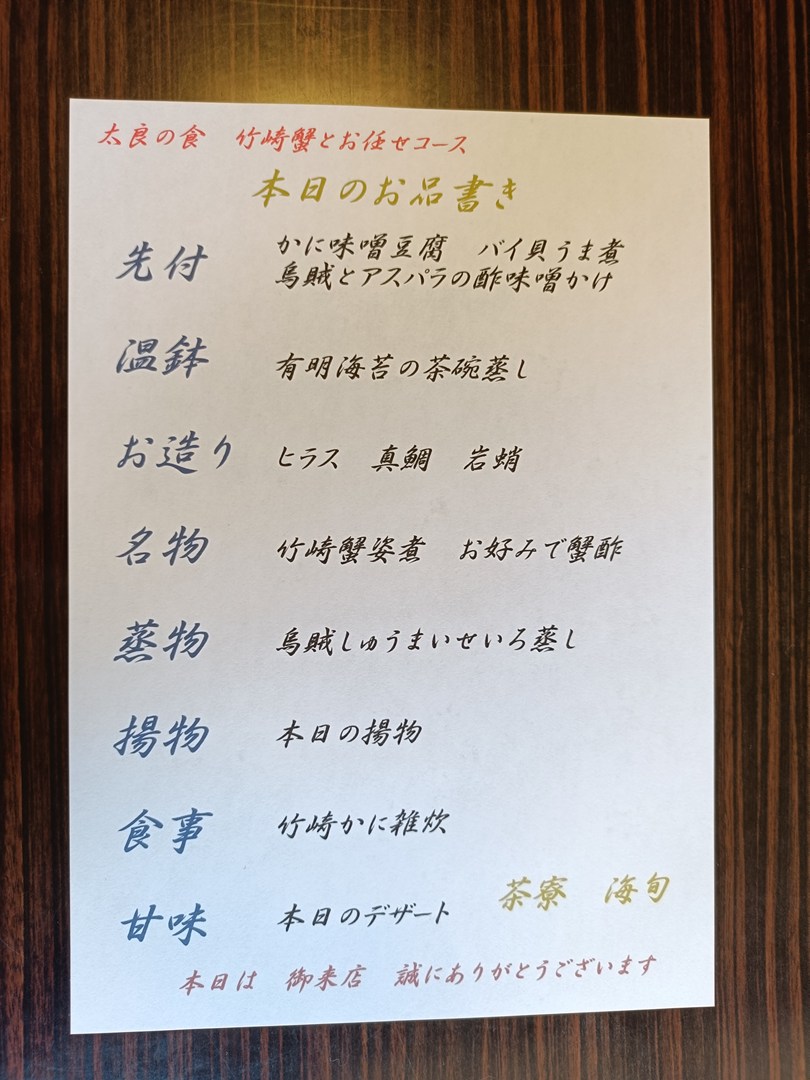 太良の食　竹崎蟹とお任せコース
本日のお品書き
先付　かに味噌豆腐　バイ貝うま煮
烏賊とアスパラの酢味噌かけ
温鉢　有明海苔の茶碗蒸し
お造り　ヒラス　真鯛　岩蛸
名物　竹崎蟹姿煮　お好みで蟹酢
蒸物　烏賊しゅうまいせいろ蒸し
揚物　本日の揚物
食事　竹崎かに雑炊
甘味　本日のデザート
茶寮　海旬
本日は　御来店　誠にありがとうございます